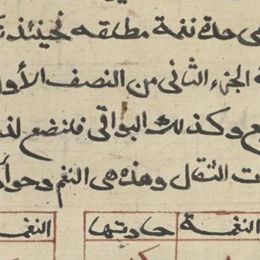 حدة نغمة مطلقه فحينئذ
الجزء الثاني من النصف الأول
وكذلك البواقي فلنضع لذ
ت الثقل وهذه هي النغم وحوا
النغمة حادتها النغمـ